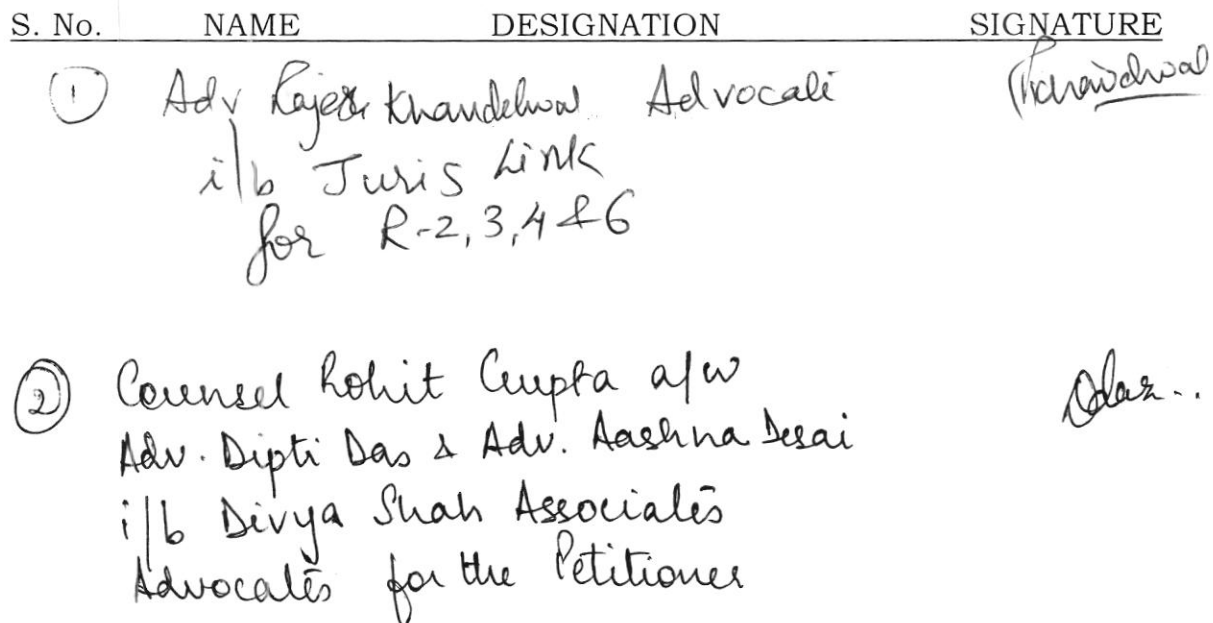 S. No. NAME DESIGNATION SIGNATURE
1 Adv Rajesh Khandelwal Advocate
i/b Juris Link
for R-2, 3, 4 & 6
2 Counsel Rohit Gupta a/w
Adv. Dipti Das & Adv. Aashna Desai
i/b Divya Shah Associates
Advocates for the Petitioner